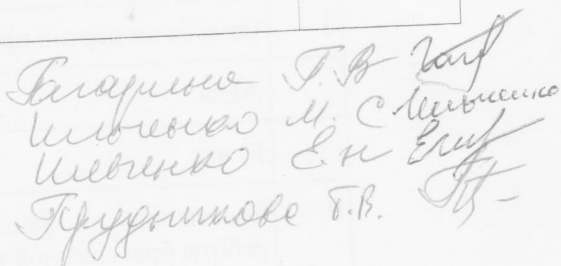 Гагарина Г. В
Ильченко М. С Ильченко
Ильченко Е н
Прудникова Т.В.